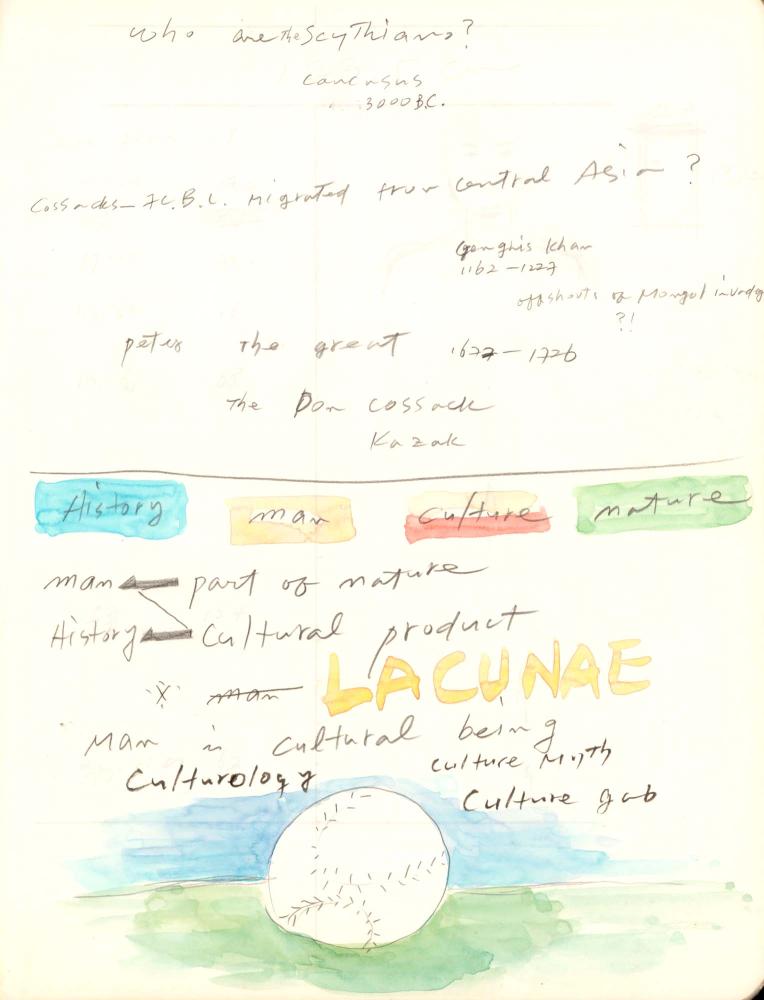 who are the Scythians?
Caucasus
3000 B.C.
Cossacks – 7C. B.C. migrated from central Asia ?
Genghis Khan
1162 – 1227
offshoots of Mongol
?!
peter the great 1677 – 1726
The Don Cossack
Kazak
History man Culture nature
man part of nature
History Cultural product
X man LACUNAE
Man is cultural being
Culturology culture Myth
Culture gab